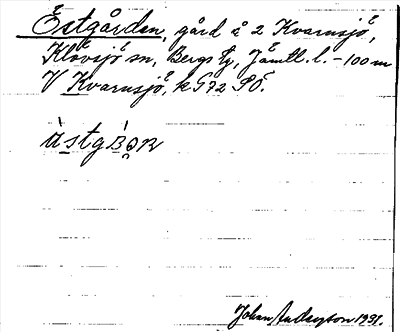 Östgården, gård å 2 Kvarnsjö,
Klövsjö sn, Bergs tg, Jämtl. l. – 100 m
V Kvarnsjö, k 572 SÖ.
Johan Anderson 1931.